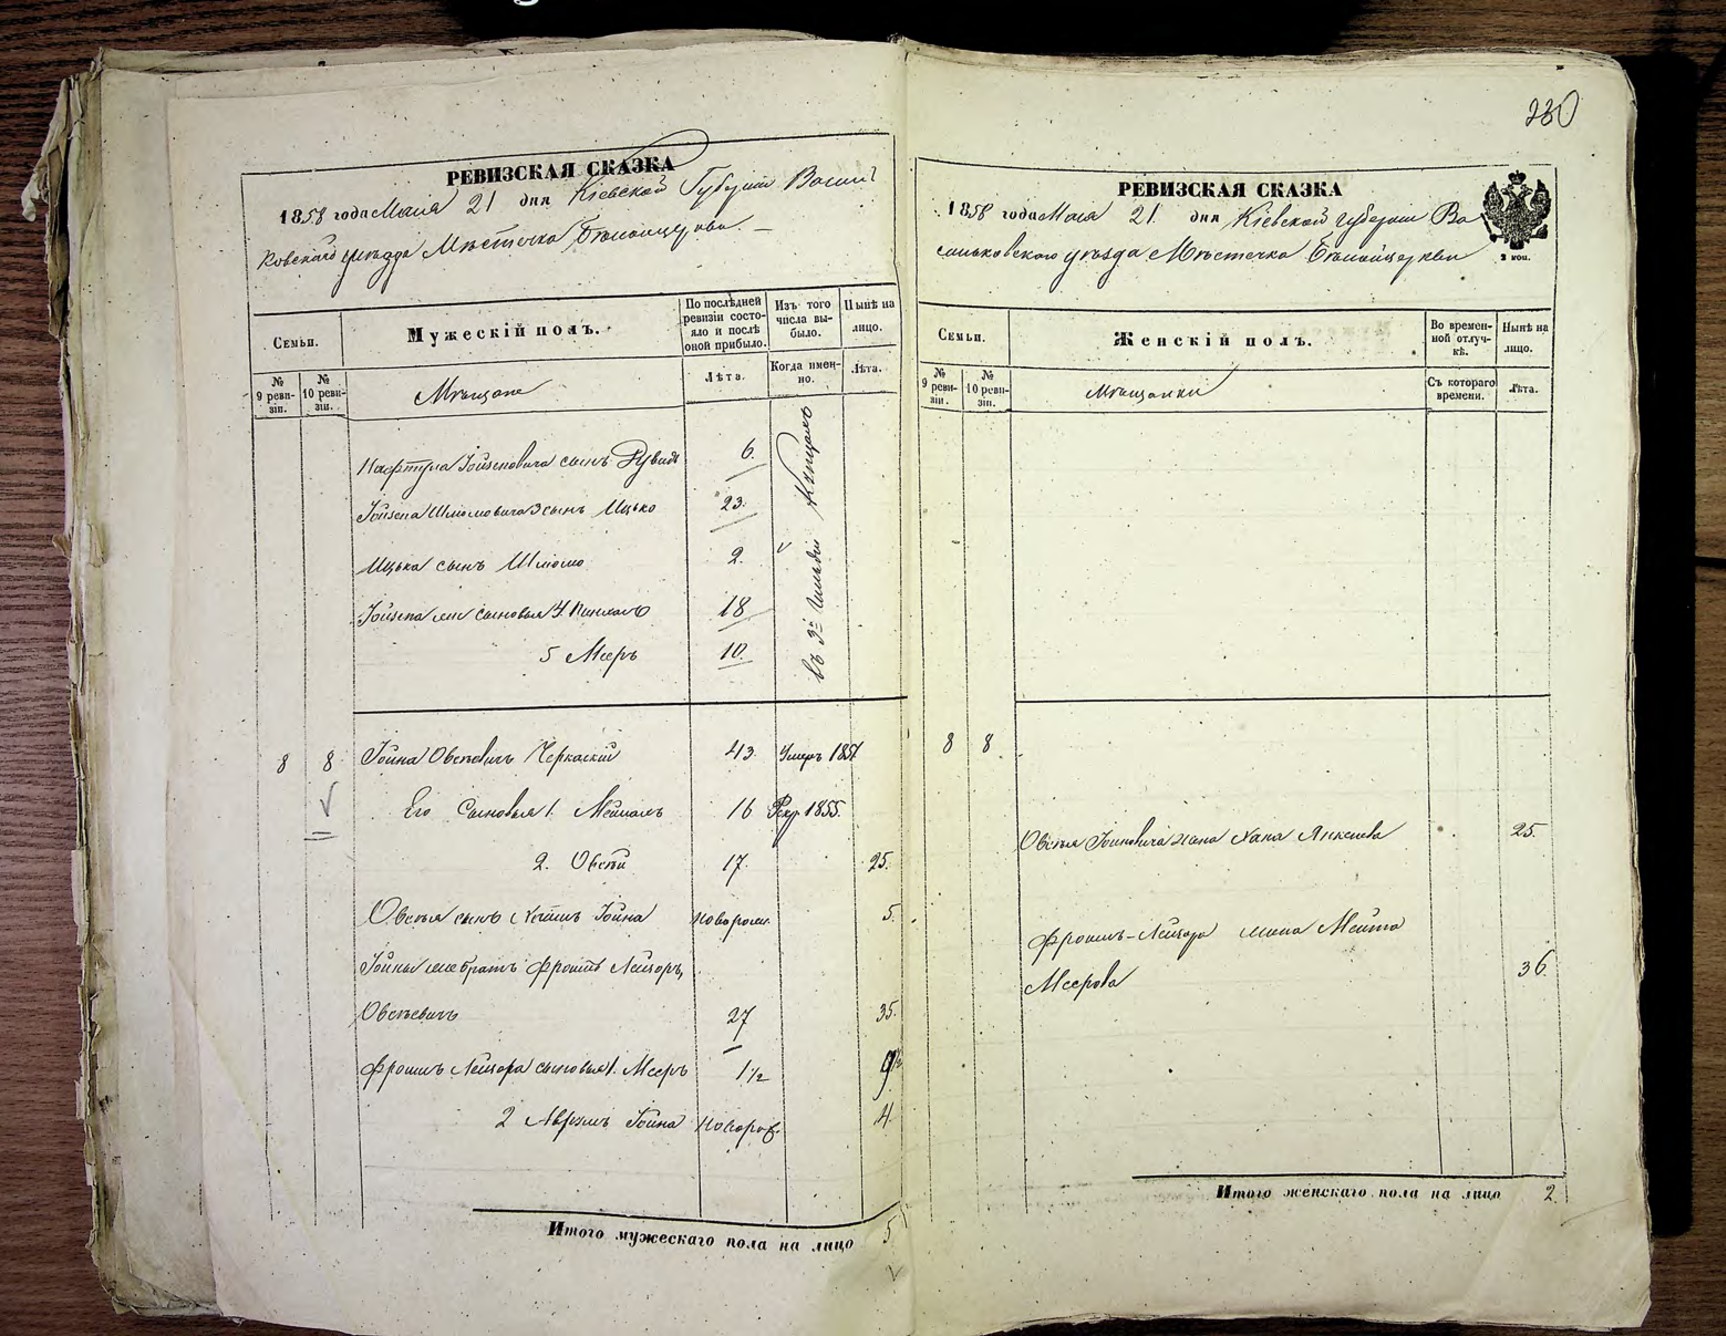 230
РЕВИЗСКАЯ СКАЗКА
1858 года Мая 21 дня Кіевской Губерніи Василь
ковскаго уѣзда Мѣстечка Бѣлойцеркви. —
Семьи.
Мужескій полъ.
По послѣдней ревизіи состояло и послѣ оной прибыло.
Изъ того числа выбыло.
Нынѣ на лицо.
№ 9 ревизіи.
№ 10 ревизіи.
Мѣщане
Лѣта.
Когда именно.
Лѣта.
Нафтула Іойсеповича сынъ Рувинъ 6.
Іойсепа Шліомовича 3 сынъ Ицько 23.
Ицька сынъ Шліомо 2.
Іойсепа же сыновья 4. Пинхасъ 18
5 Мееръ 10.
въ 3й Гильдіи Купцахъ
8 8 Іойна Овсѣевичъ Черкаскій 43. Умеръ 1851
Его Сыновья 1. 16 Рекр 1855.
2. Овсѣй 17. 25.
Овсѣя сынъ Іойна новорож. 5.
Іойны же братъ Фроимъ Лейзоръ
Овсѣевичъ 27 35.
Фроимъ Лейзора сыновья 1. Мееръ 1 1/2 9 1/2
2 Аврумъ Іойна новорож. 4.
Итого мужескаго пола на лицо 5
РЕВИЗСКАЯ СКАЗКА
1858 года Мая 21. дня Кіевской губерніи Ва
сильковскаго уѣзда Мѣстечка Бѣлойцеркви
2 коп.
Семьи.
Женскій полъ.
Во временной отлучкѣ.
Нынѣ на лицо.
№ 9 ревизіи.
№ 10 ревизіи.
Мѣщанки
Съ котораго времени.
Лѣта.
8 8
Овсѣя Іойновича жена Хана Янкелева 25.
Фроимъ-Лейзора жена
Меерова 36.
Итого женскаго пола на лицо 2.